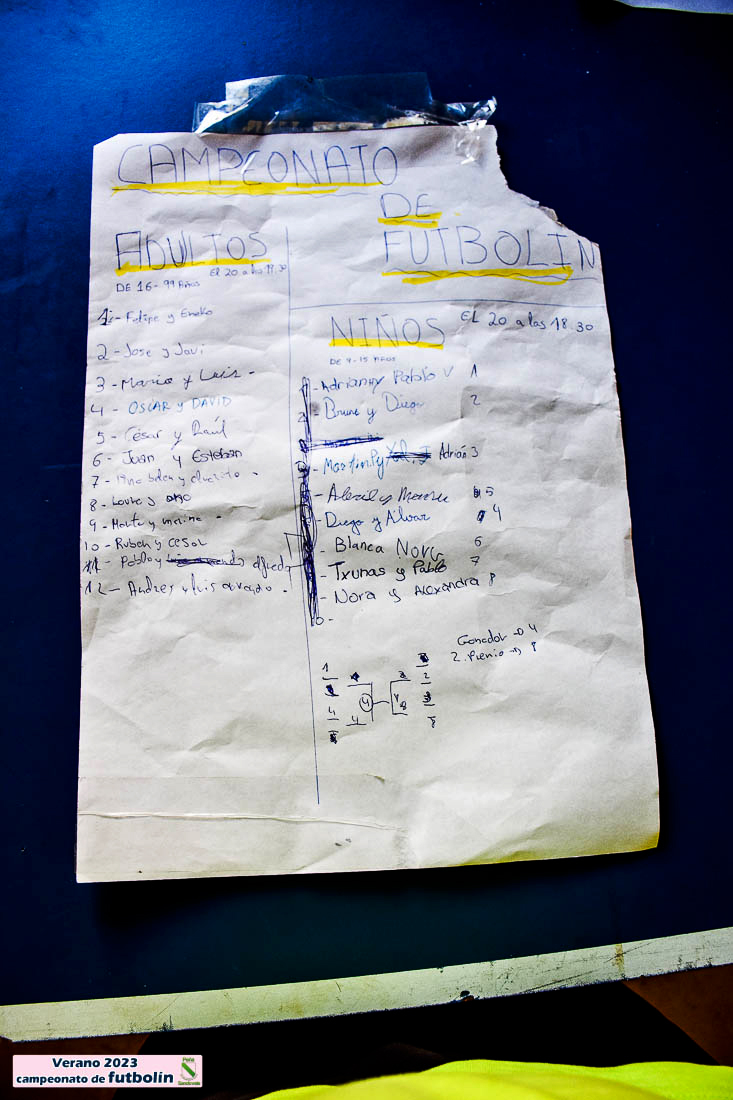 CAMPEONATO
DE
FUTBOLIN
ADULTOS
El 20 a las 18.30
DE 16 - 99 Años
1 - Felipe y Eneko
2 - Jose y Javi
3 - Mario y Luis -
4 - OSCAR y DAVID
5 - César y Raúl
6 - Juan y Esteban
7 -
8 -
9 -
10 - Ruben y Cesar
11 - Pablo y
12 - Andres y Luis
NIÑOS
EL 20 a las 18.30
DE 9 - 15 Años
- Adrian y Pablo V 1
- Bruno y Diego 2
- Martin P y Adrián 3
- y 5
- Diego y Alvar 4
- Blanca Nora 6
- Txunas y Pablo 7
- Nora y Alexandra 8
Ganador → 4
2. Premio → 8
1
2
4
4
4
8
8
Verano 2023
campeonato de futbolín
Peña